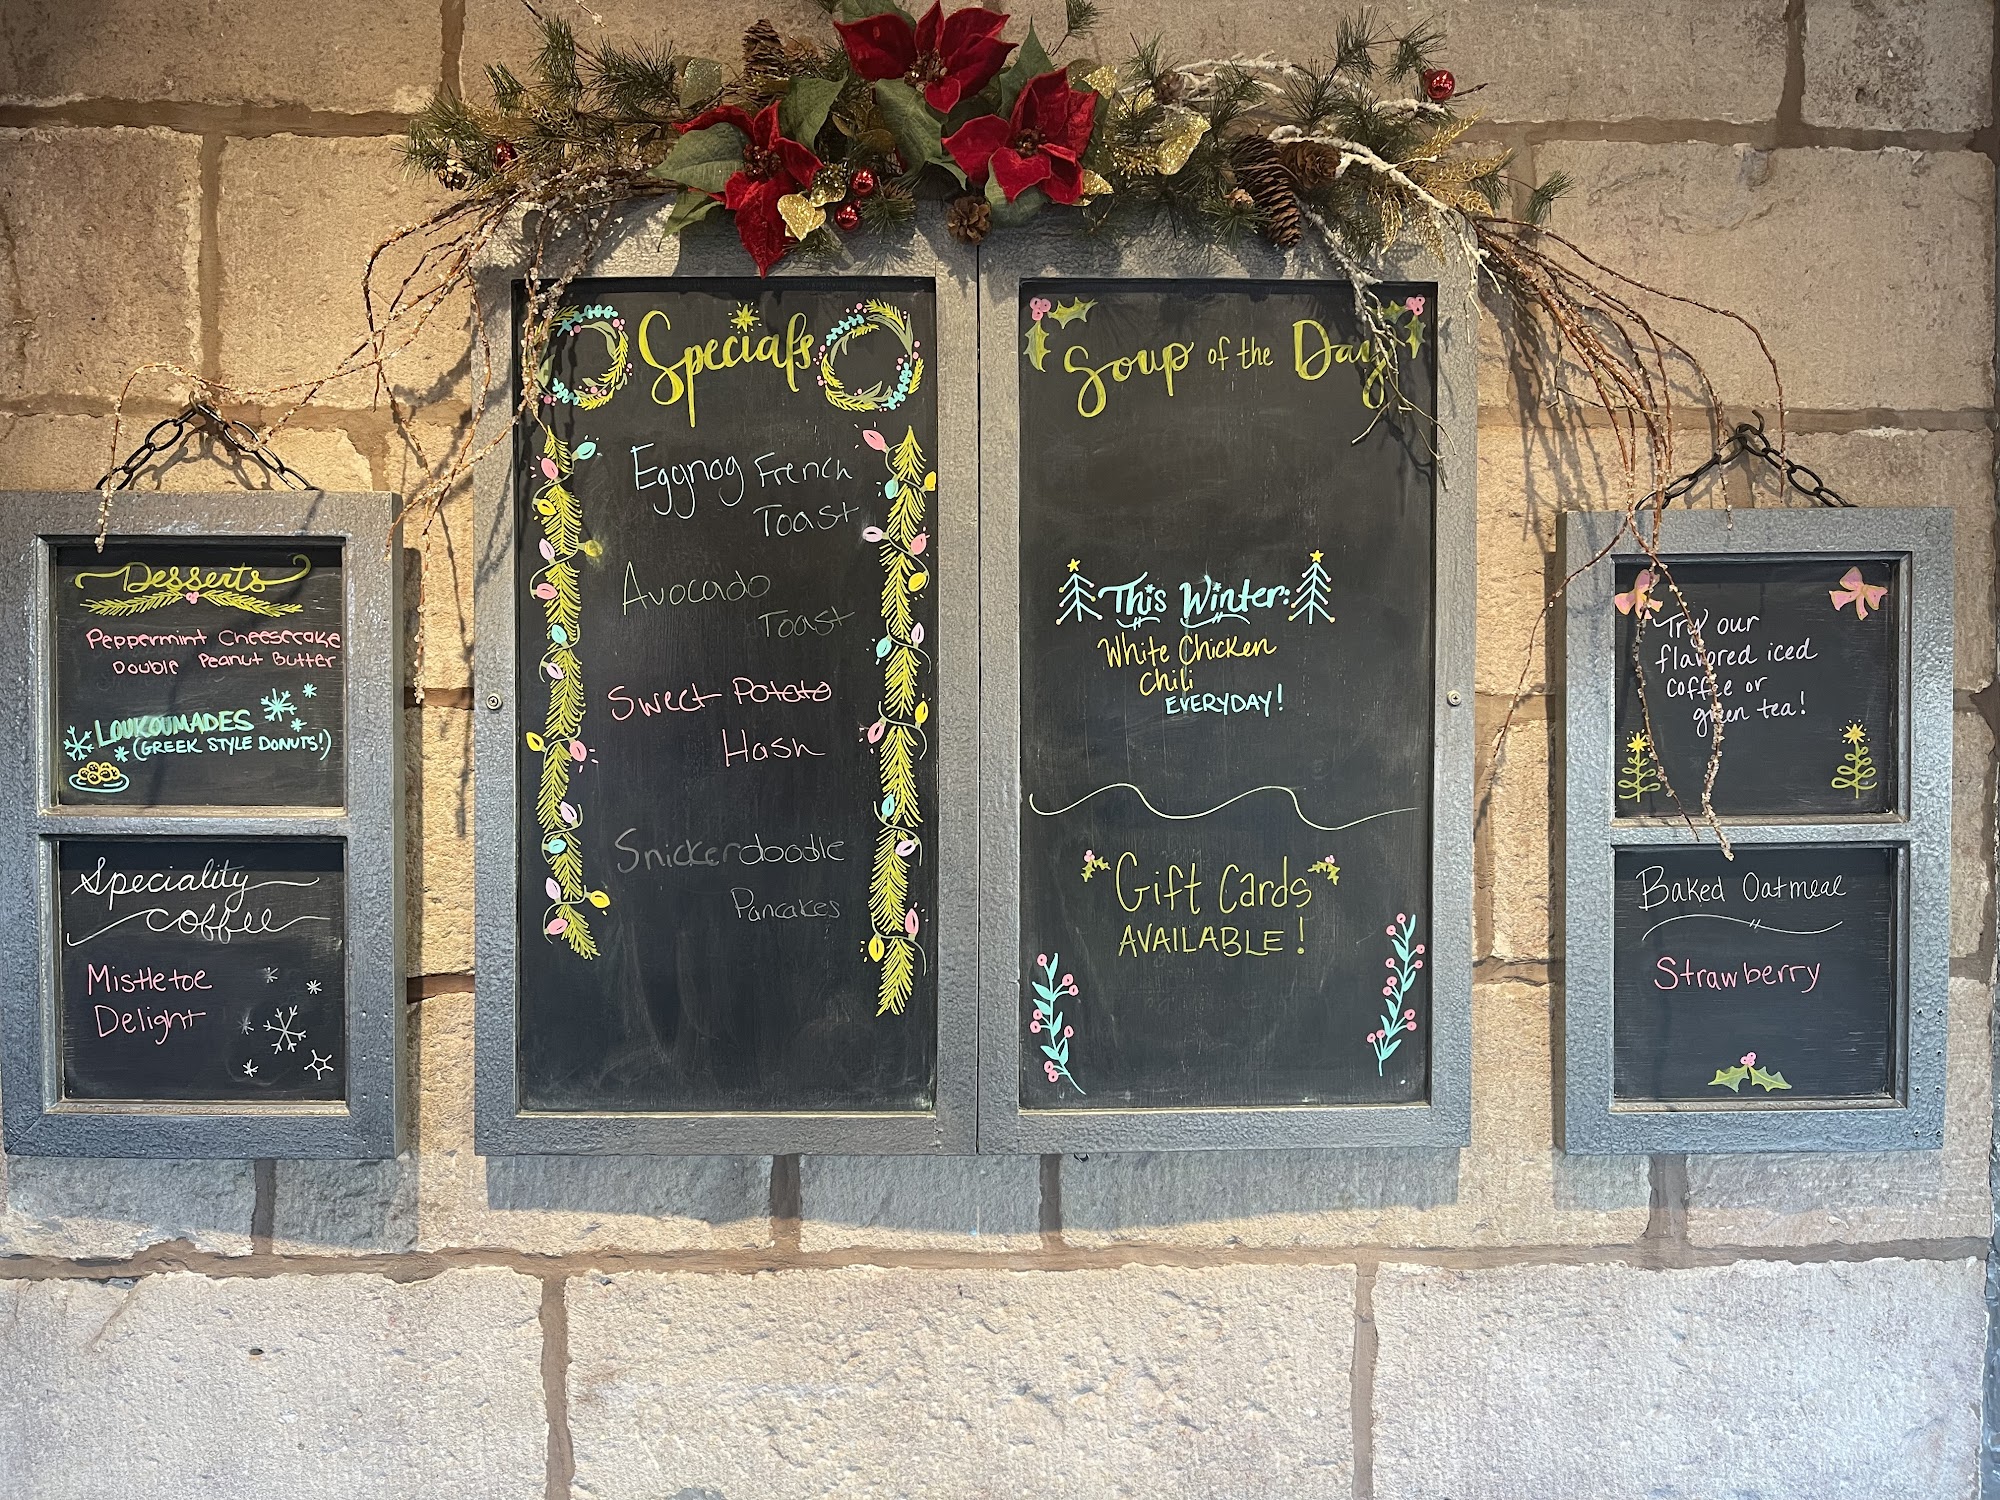 Desserts
Peppermint Cheesecake
Double Peanut Butter
LOUKOUMADES
(GREEK STYLE DONUTS!)
Speciality
coffee
Mistletoe
Delight
Specials
Eggnog French
Toast
Avocado
Toast
Sweet Potato
Hash
Snickerdoodle
Pancakes
Soup of the Day
This Winter:
White Chicken
Chili
EVERYDAY!
Gift Cards
AVAILABLE!
Try our
flavored iced
coffee or
green tea!
Baked Oatmeal
Strawberry